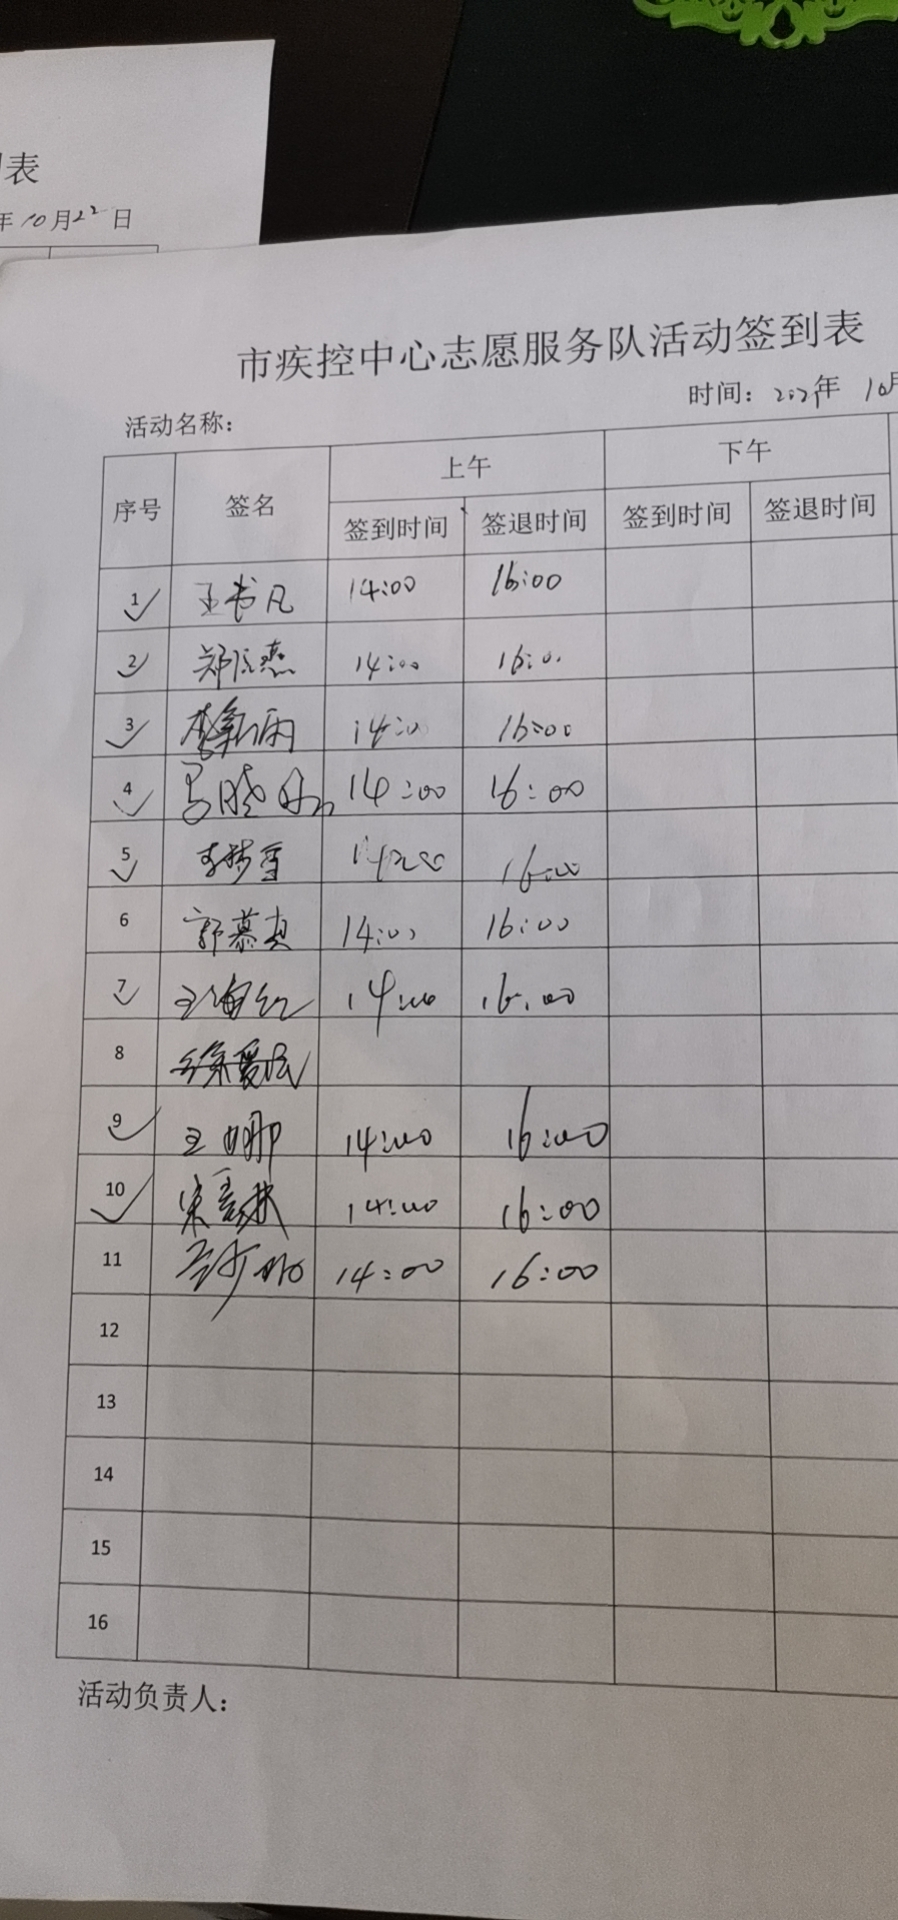 表
年10月22日
市疾控中心志愿服务队活动签到表
时间：年 10月
活动名称：
序号 签名 上午 下午
签到时间 签退时间 签到时间 签退时间
1 王书凡 14:00 16:00
2 14:00 16:0
3 14:00 16:00
4 14:00 16:00
5 李梦雪 14:00 16:00
6 郭慕真 14:00 16:00
7 王海红 14:00 16:00
8
9 王娜 14:00 16:00
10 14:00 16:00
11 14:00 16:00
12
13
14
15
16
活动负责人：